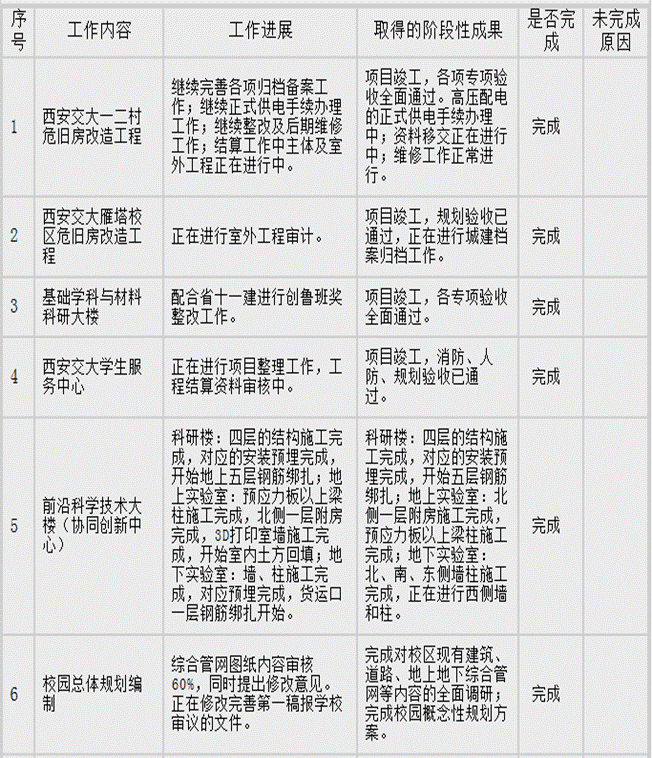 序号 工作内容 工作进展 取得的阶段性成果 是否完成 未完成原因
1
西安交大一二村
危旧房改造工程
继续完善各项归档备案工
作；继续正式供电手续办理
工作；继续整改及后期维修
工作；结算工作中主体及室
外工程正在进行中。
项目竣工，各项专项验
收全面通过。高压配电
的正式供电手续办理
中；资料移交正在进行
中；维修工作正常进
行。
完成
2
西安交大雁塔校
区危旧房改造工
程
正在进行室外工程审计。
项目竣工，规划验收已
通过，正在进行城建档
案归档工作。
完成
3
基础学科与材料
科研大楼
配合省十一建进行创鲁班奖
整改工作。
项目竣工，各专项验收
全面通过。
完成
4
西安交大学生服
务中心
正在进行项目整理工作，工
程结算资料审核中。
项目竣工，消防、人
防、规划验收已通
过。
完成
5
前沿科学技术大
楼（协同创新中
心）
科研楼：四层的结构施工完
成，对应的安装预埋完成，
开始地上五层钢筋绑扎；地
上实验室：预应力板以上梁
柱施工完成，北侧一层附房
完成，3D打印室墙施工完
成，开始室内土方回填；地
下实验室：墙、柱施工完
成，对应预埋完成，货运口
一层钢筋绑扎开始。
科研楼：四层的结构施
工完成，对应的安装预
埋完成，开始五层钢筋
绑扎；地上实验室：北
侧一层附房施工完成，
预应力板以上梁柱施工
完成；地下实验室：
北、南、东侧墙柱施工
完成，正在进行西侧墙
和柱。
完成
6
校园总体规划编
制
综合管网图纸内容审核
60%，同时提出修改意见。
正在修改完善第一稿报学校
审议的文件。
完成对校区现有建筑、
道路、地上地下综合管
网等内容的全面调研；
完成校园概念性规划方
案。
完成